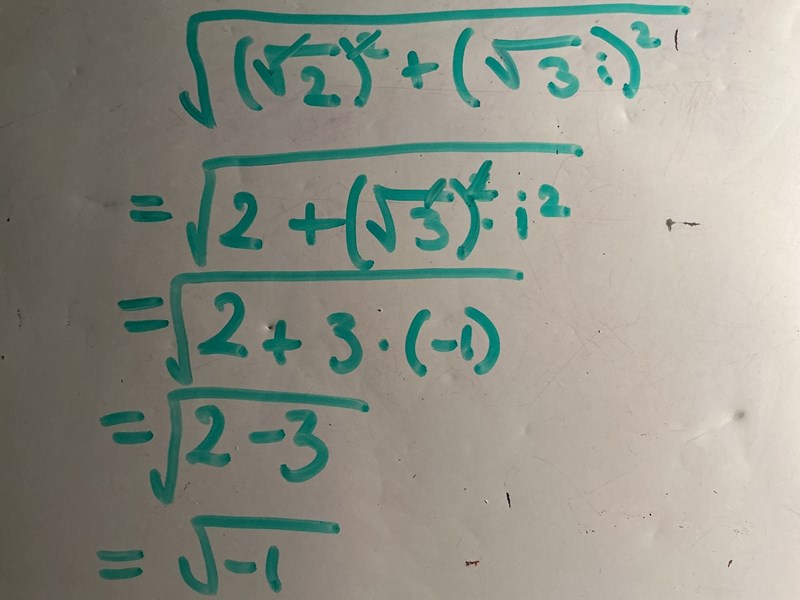 √((√2)² + (√3 i)²)
= √(2 + (√3)² · i²)
= √(2 + 3 · (-1))
= √(2 - 3)
= √-1